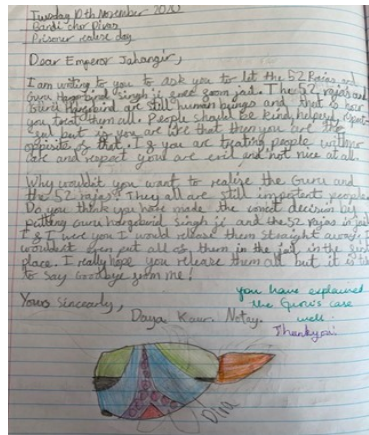 Tuesday 10th November 2020
Bandi chor Divas
Prisoner realise day
Dear Emperor Jahangir,
I am writing to you to ask you to let the 52 Rajas and
Guru Hargobind singh ji free from jail. The 52 rajas and
Guru Hargobind are still human beings and that is how
you treat them all. People should be kind, helpful, respect-
ful but if you are like that then you are the
opposite of that. If you are treating people without
care and respect you are evil and not nice at all.
Why wouldn't you want to realise the Guru and
the 52 rajas? They all are still important people.
Do you think you have made the correct decision by
putting Guru Hargobind Singh ji and the 52 rajas in jail
If I were you I would release them straight away. I
wouldn't even put all of them in the jail in the first
place. I really hope you release them all but it is time
to say Goodbye from me!
Yours Sincerely,
Daya Kaur Notay.
you have explained
the Guru's case
well.
Thankyou!
Diva